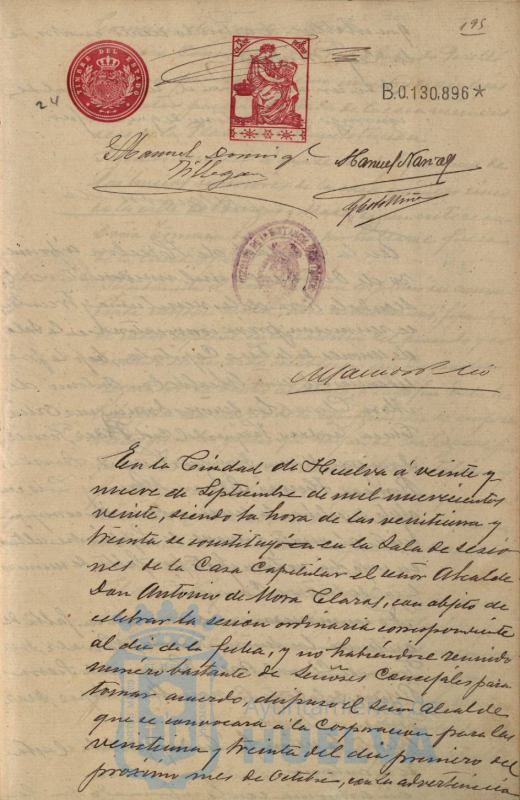 195
TIMBRE DEL ESTADO
24
B.0.130.896*
Manuel Doming
Villegas
Manuel Narvaez
En la Ciudad de Huelva á veinte y
nueve de Septiembre de mil nuevecientos
veinte, siendo la hora de las veintiuna y
treinta se constituyó en en la Sala de sesio
nes de la Casa Capitular el señor Alcalde
Don Antonio de Mora Claros, con objeto de
celebrar la sesión ordinaria correspondiente
al dia de la fecha, y no habiéndose reunido
número bastante de Señores Concejales para
tomar acuerdo, dispuso el señor Alcalde
que se convocara á la Corporación para las
veintiuna y treinta del dia primero del
próximo mes de Octubre, con la advertencia
HUELVA